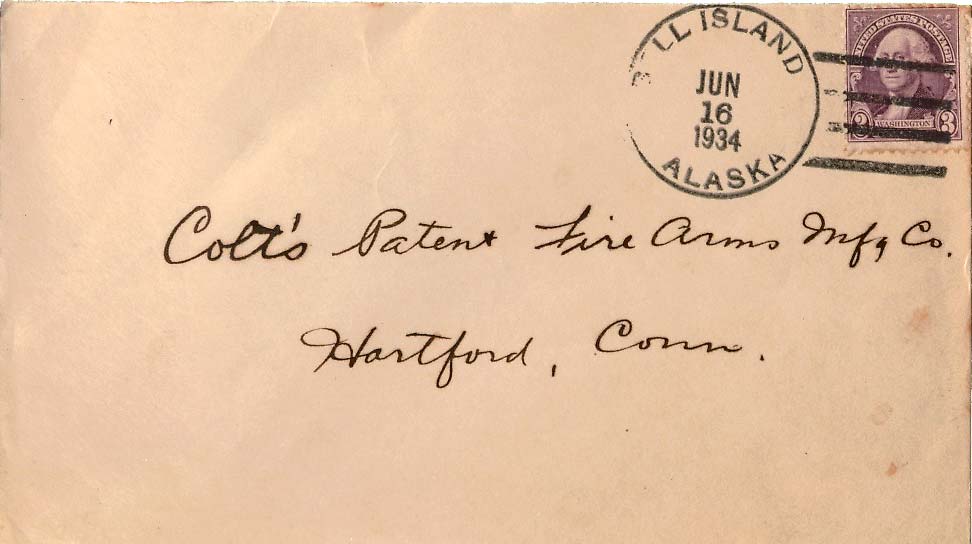 LL ISLAND
JUN
16
1934
ALASKA
UNITED STATES POSTAGE
WASHINGTON
3 3
Colt's Patent Fire Arms Mfg Co.
Hartford, Conn.